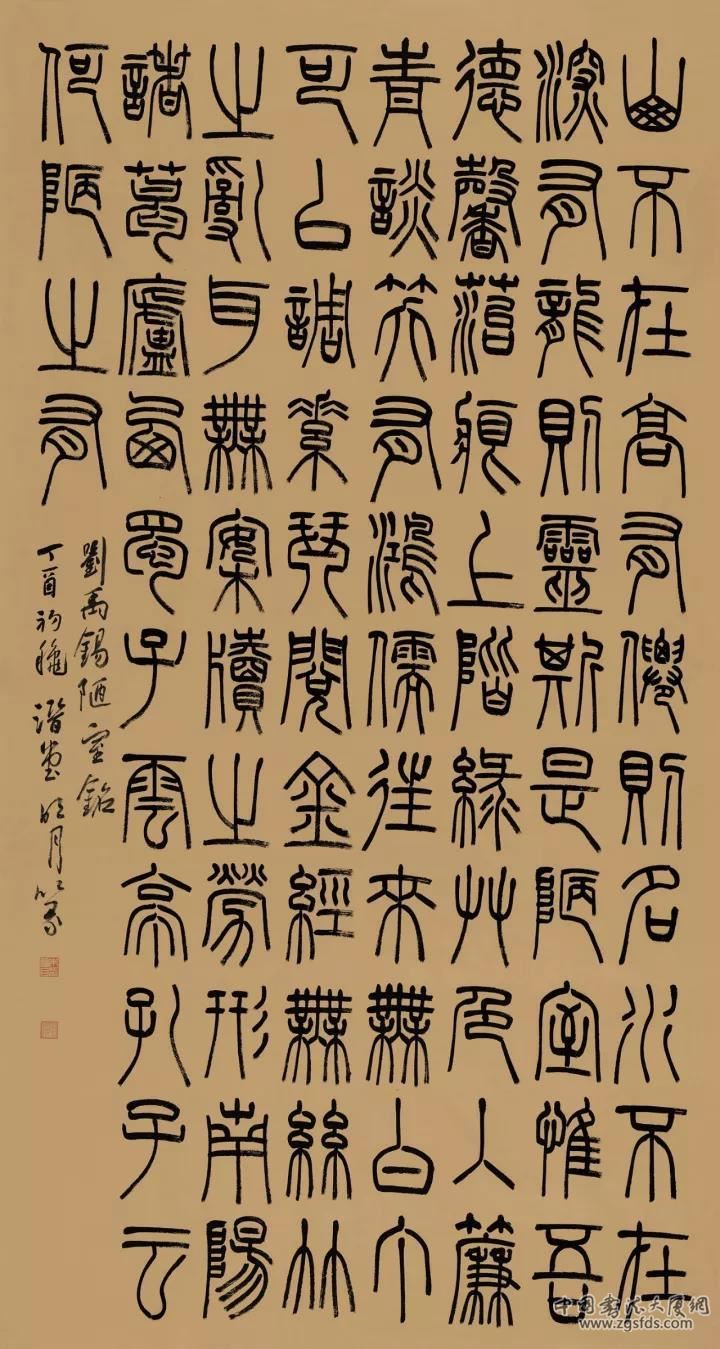 山不在高有僊則名水不在
深有龍則靈斯是陋室惟吾
德馨菭痕上階緑艸色入簾
青談笑有鴻儒往來無白丁
可㠯調素琴閱金經無絲竹
之亂耳無案牘之勞形南陽
諸葛廬西蜀子雲亭孔子云
何陋之有
劉禹錫陋室銘
丁酉初穐潛堂明月篆
中国书法大厦網
www.zgsfds.com